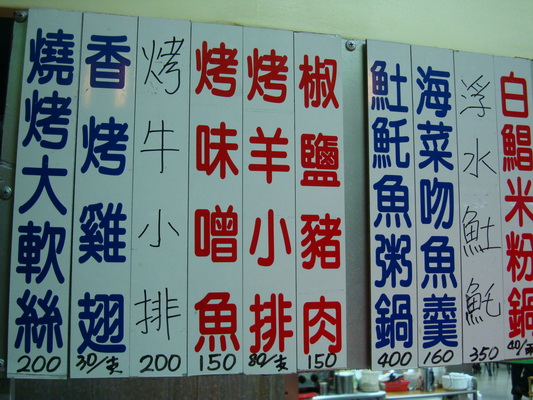 白鯧米粉鍋
40/兩
浮水𩵚魠
350
海菜吻魚羹
160
𩵚魠魚粥鍋
400
椒鹽豬肉
150
烤羊小排
80/支
烤味噌魚
150
烤牛小排
200
香烤雞翅
30/支
燒烤大軟絲
200